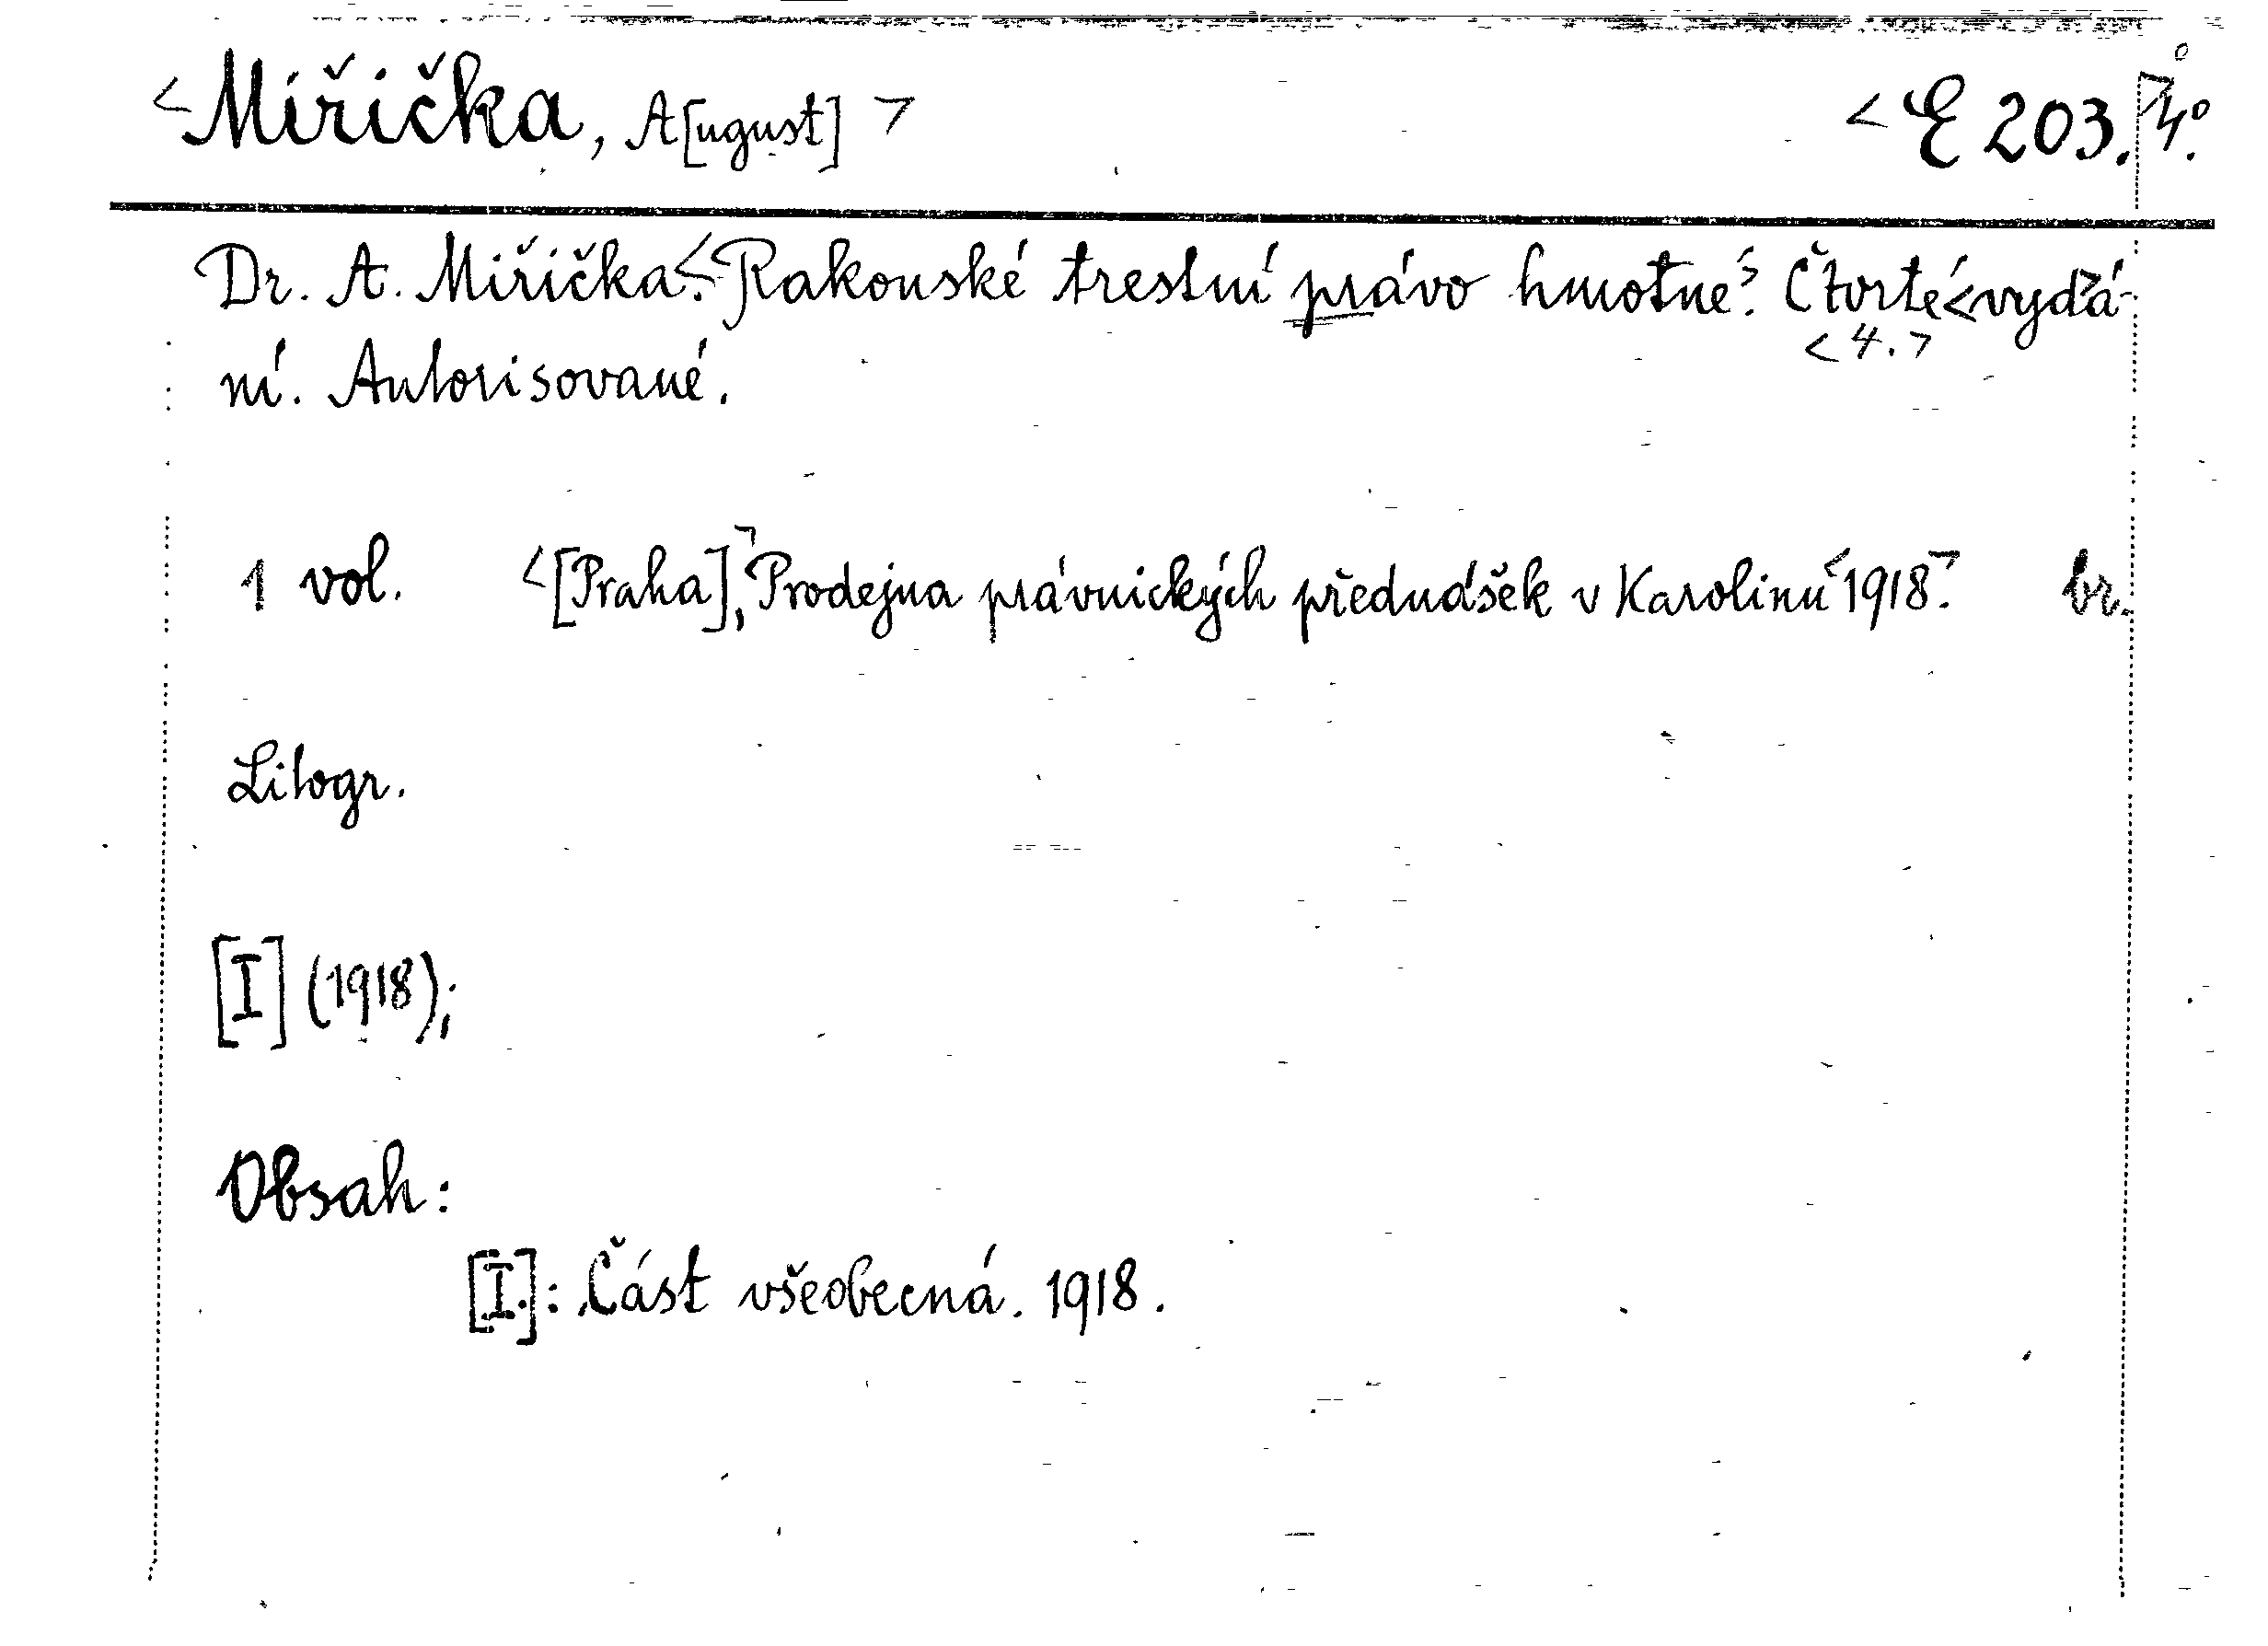 <Miřička, A[ugust]> <E 203.>4°.
Dr. A. Miřička.<Rakouské trestní právo hmotné>. Čtvrté<vydá-
<4.>
ní. Autorisované.
1 vol. <[Praha],> Prodejna právnických přednášek v Karolinu <1918>. br.
Litogr.
[I] (1918);
Obsah:
[I.]: Část všeobecná. 1918.